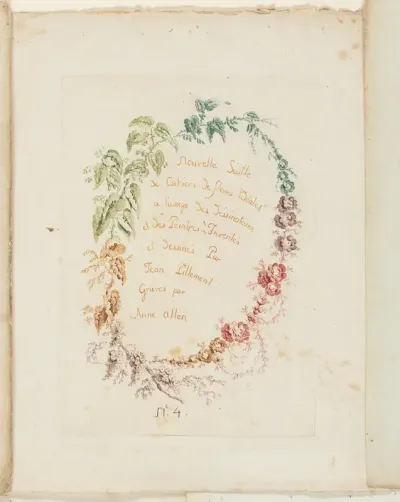 Nouvelle Suitte
de Cahiers de fleurs Idéales
a l'usage des Dessinateurs
et des Peintres Inventés
et Dessinés Par
Jean Pillement
Gravés par
Anne allen
N. 4.